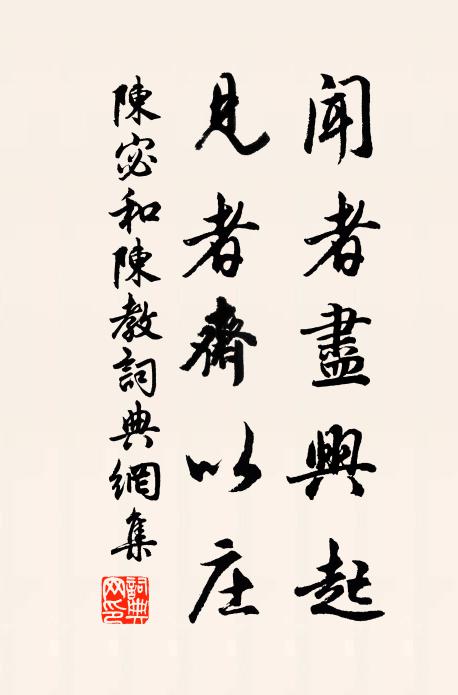 聞者盡興起
見者齊以庄
陳宓和陳教詞典網集
詞典网印